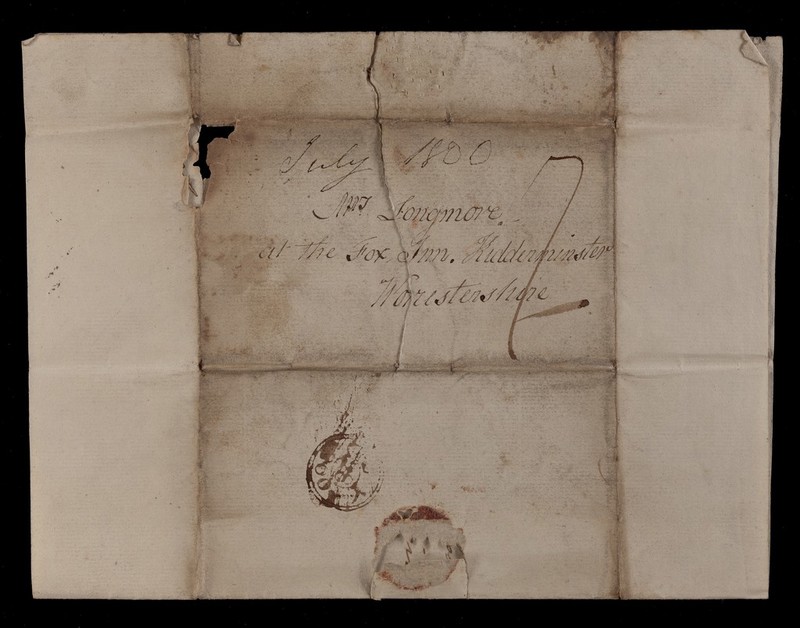 July 1800
Mrs Longmore
at the Fox Inn. Kidderminster
Worcestershire